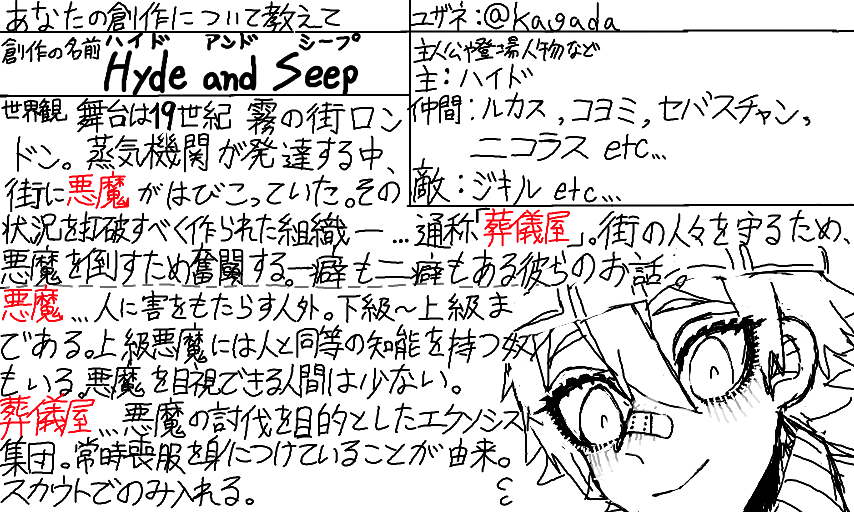 あなたの創作について教えて
ユザネ:@kagada
創作の名前
ハイド アンド シープ
Hyde and Seep
主人公や登場人物など
主:ハイド
仲間:ルカス,コヨミ,セバスチャン,
ニコラス etc...
敵:ジキル etc...
世界観 舞台は19世紀 霧の街ロン
ドン。蒸気機関が発達する中、
街に悪魔がはびこっていた。その
状況を打破すべく作られた組織ー...通称「葬儀屋」。街の人々を守るため、
悪魔を倒すため奮闘する。一癖も二癖もある彼らのお話。
悪魔...人に害をもたらす人外。下級~上級ま
である。上級悪魔には人と同等の知能を持つ奴
もいる。悪魔を目視できる人間は少ない。
葬儀屋...悪魔の討伐を目的としたエクソシスト
集団。常時喪服を身につけていることが由来。
スカウトでのみ入れる。